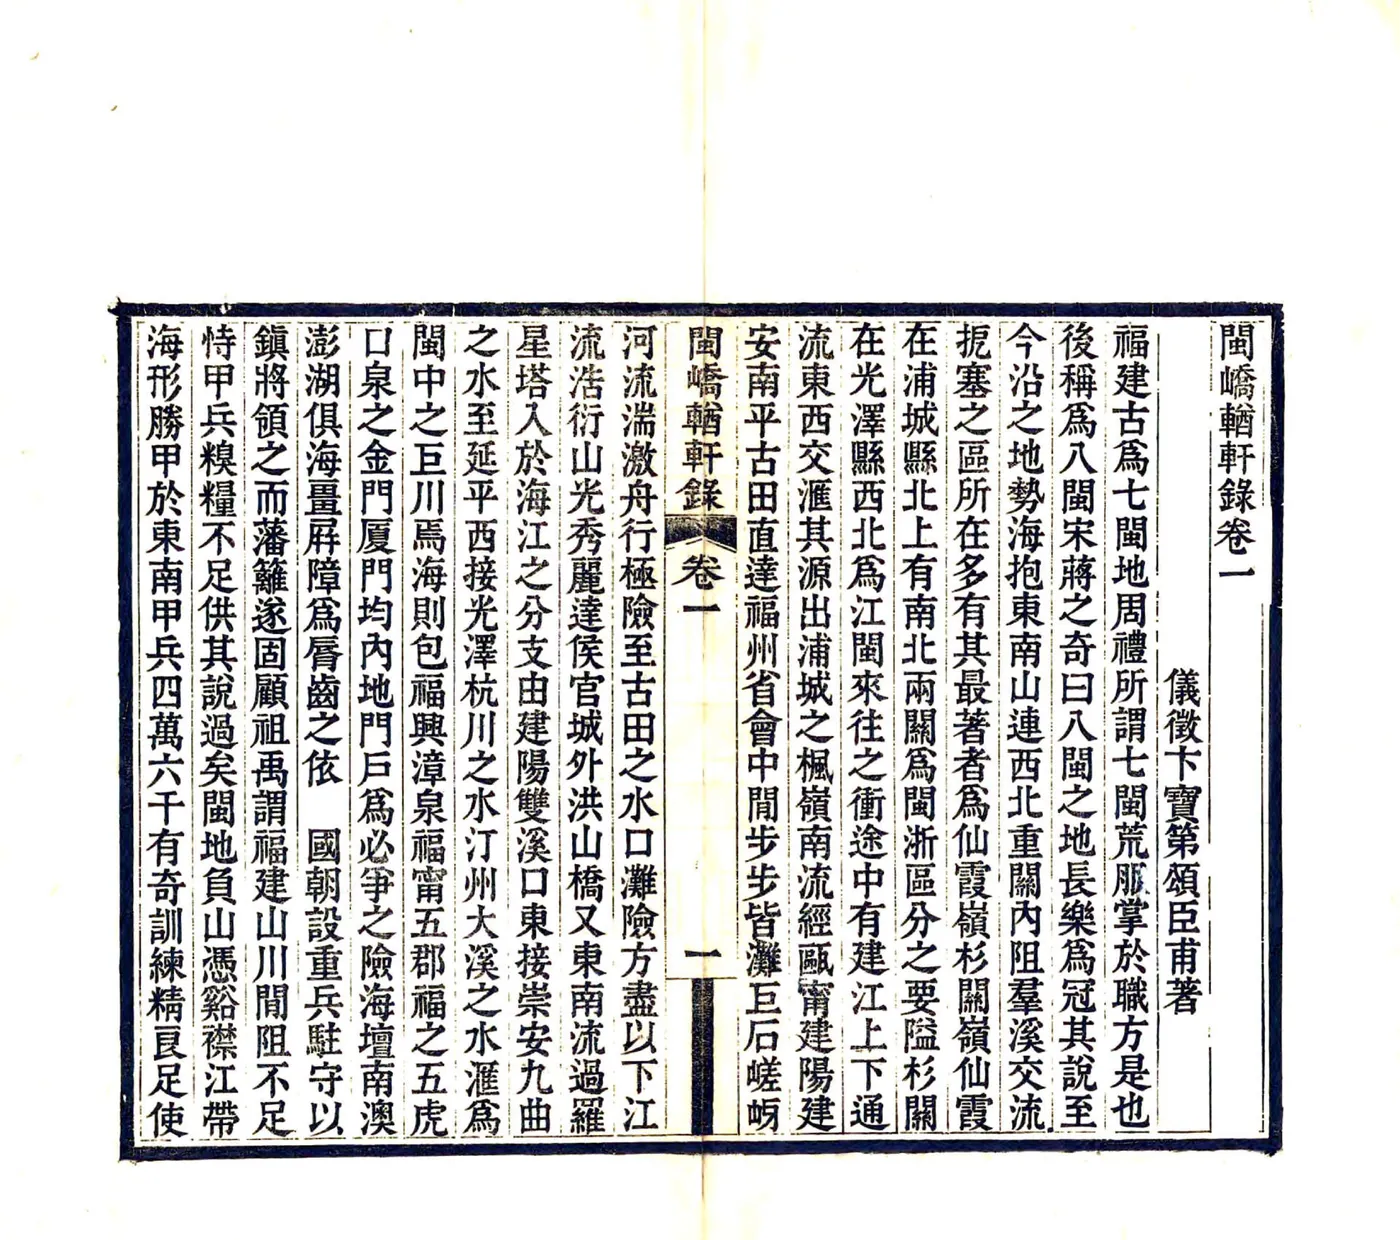 閩嶠輶軒錄卷一
儀徵卞寶第頌臣甫著
福建古爲七閩地周禮所謂七閩荒服掌於職方是也
後稱爲八閩宋蔣之奇曰八閩之地長樂爲冠其說至
今沿之地勢海抱東南山連西北重關內阻羣溪交流
扼塞之區所在多有其最著者爲仙霞嶺杉關嶺仙霞
在浦城縣北上有南北兩關爲閩浙區分之要隘杉關
在光澤縣西北爲江閩來往之衝途中有建江上下通
流東西交滙其源出浦城之楓嶺南流經甌甯建陽建
安南平古田直達福州省會中閒步步皆灘巨石嵯岈
閩嶠輶軒錄 卷一 一
河流湍激舟行極險至古田之水口灘險方盡以下江
流浩衍山光秀麗達侯官城外洪山橋又東南流過羅
星塔入於海江之分支由建陽雙溪口東接崇安九曲
之水至延平西接光澤杭川之水汀州大溪之水滙爲
閩中之巨川焉海則包福興漳泉福甯五郡福之五虎
口泉之金門厦門均內地門戶爲必爭之險海壇南澳
澎湖俱海畺屛障爲脣齒之依 國朝設重兵駐守以
鎭將領之而藩籬遂固顧祖禹謂福建山川閒阻不足
恃甲兵糗糧不足供其說過矣閩地負山憑谿襟江帶
海形勝甲於東南甲兵四萬六千有奇訓練精良足使